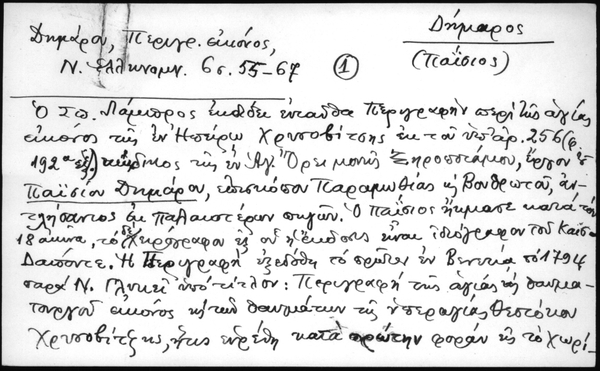 Δήμαρος
(Παΐσιος)
Δημάρου, Περιγρ. εἰκόνος,
Ν. Ἑλληνομν. 6 σ. 55-67
①
Ὁ Σπ. Λάμπρος ἐκδίδει ἐνταῦθα Περιγραφὴν περὶ τῆς ἁγίας
εἰκόνος τῆς ἐν Ἠπείρῳ Χρυσοβίτσης ἐκ τοῦ ὑπ' ἀρ. 256 (φ.
192α ἑξ.) κώδικος τῆς ἐν Ἁγ. Ὄρει μονῆς Ξηροποτάμου, ἔργον
Παϊσίου Δημάρου, ἐπισκόπου Παραμυθίας κ Βουθρωτοῦ, ἀν-
τλήσαντος ἐκ παλαιοτέρων πηγῶν. Ὁ Παΐσιος ἤκμασε κατὰ τὸν
18 αἰῶνα, τὸ δὲ χειρόγραφον ἐξ οὗ ἡ ἔκδοσις εἶναι ἰδιόγραφον τοῦ Καισ.
Δαπόντε. Ἡ Περιγραφὴ ἐξεδόθη τὸ πρῶτον ἐν Βενετίᾳ τὸ 1794
παρὰ Ν. Γλυκεῖ ὑπὸ τίτλον: Περιγραφὴ τῆς ἁγίας κ θαυμα-
τουργοῦ εἰκόνος κ τῶν θαυμάτων τῆς ὑπεραγίας Θεοτόκου
Χρυσοβίτζης, ἥτις εὑρέθη κατὰ πρώτην φορὰν εἰς τὸ χωρί-